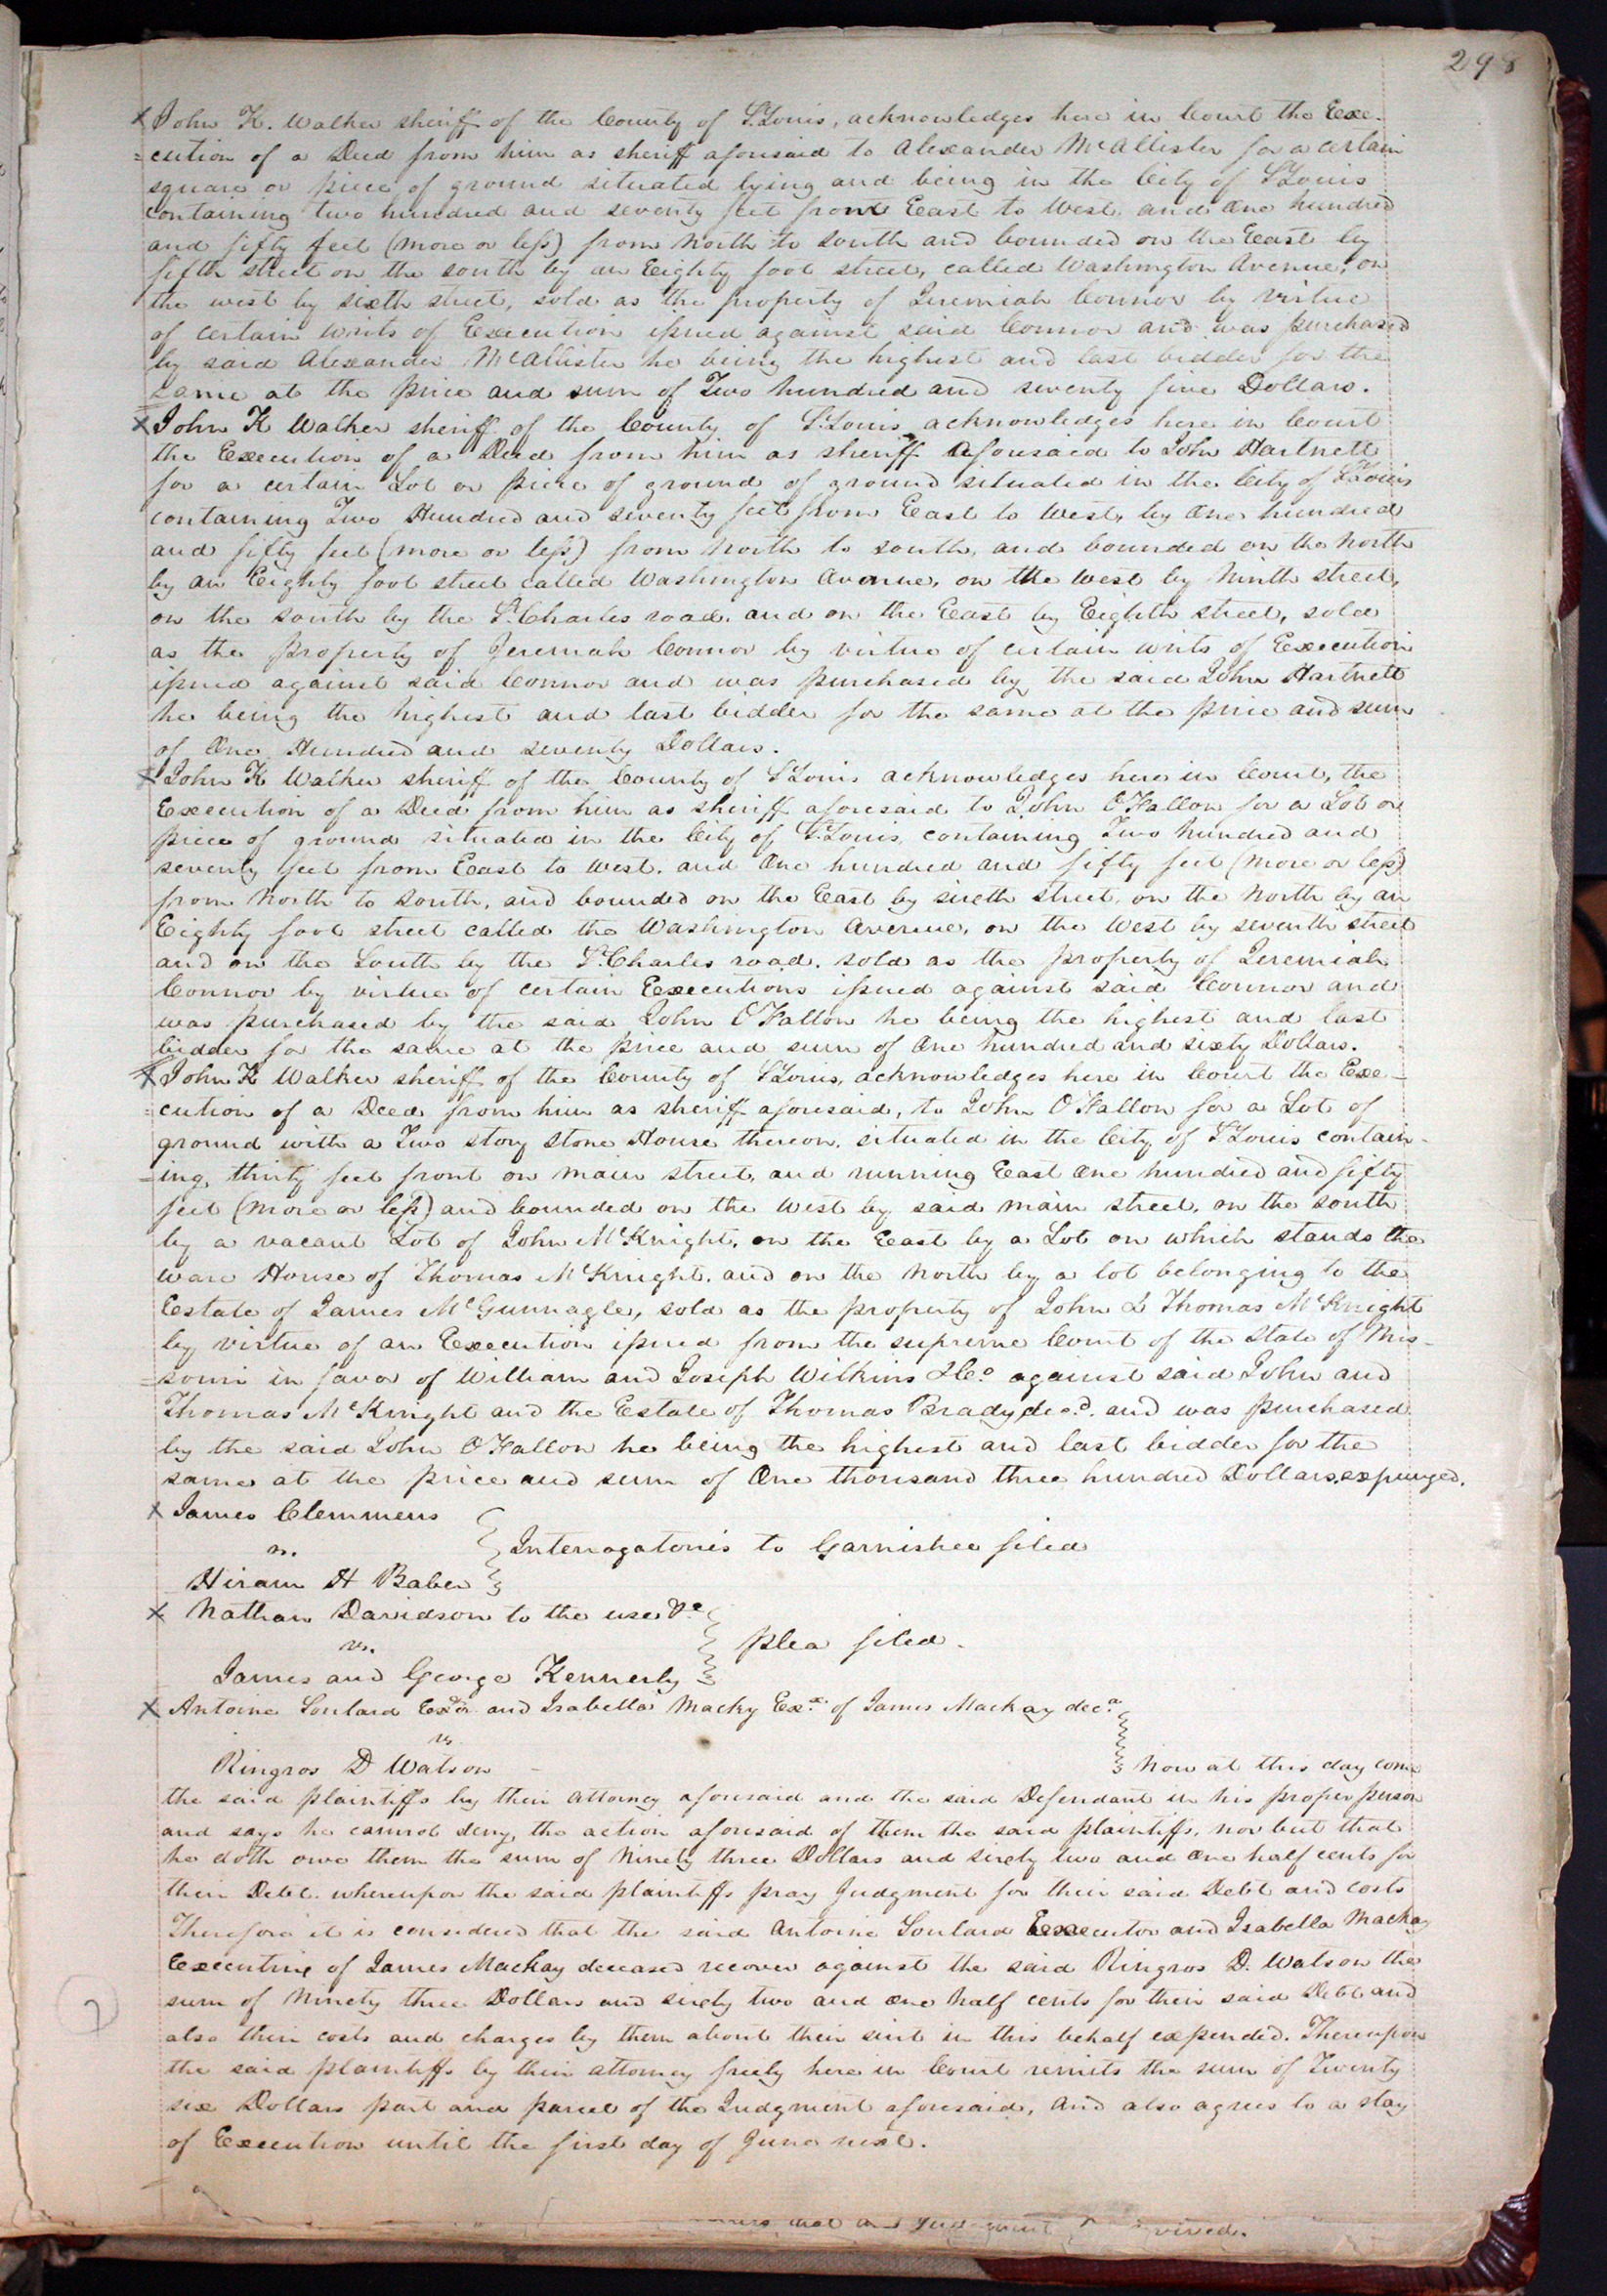 298
John K. Walker sheriff of the County of St. Louis, acknowledges here in Court the Exe-
=cution of a Deed from him as sheriff aforesaid to Alexander McAllister for a certain
square or piece of ground situated lying and being in the City of St Louis
containing two hundred and seventy feet front East to West and One hundred
and fifty feet (more or less) from North to South and bounded on the East by
fifth street on the south by an Eighty foot street, called Washington Avenue, on
the west by sixth street, sold as the property of Jeremiah Connor by virtue
of certain writs of Execution issued against said Connor and was purchased
by said Alexander McAllister he being the highest and last bidder for the
same at the price and sum of Two hundred and seventy five Dollars.
John K Walker sheriff of the County of St. Louis acknowledges here in Court
the Execution of a Deed from him as sheriff aforesaid to John Hartnett
for a certain Lot or piece of ground of ground situated in the City of St Louis
containing Two Hundred and seventy feet from East to West, by One hundred
and fifty feet (more or less) from North to South, and bounded on the North
by an Eighty foot street called Washington Avenue, on the West by Ninth street,
on the south by the St. Charles road, and on the East by Eighth street, sold
as the property of Jeremiah Connor by virtue of certain writs of Execution
issued against said Connor and was purchased by the said John Hartnett
he being the highest and last bidder for the same at the price and sum
of One Hundred and seventy Dollars.
John K Walker sheriff of the County of St Louis acknowledges here in Court, the
Execution of a Deed from him as Sheriff aforesaid to John O'Fallon for a Lot or
piece of ground situated in the City of St. Louis, containing Two hundred and
seventy feet from East to West. and One hundred and fifty feet (more or less)
from North to South, and bounded on the East by sixth street, on the North by an
Eighty foot street called the Washington Avenue, on the West by seventh street
and on the South by the St. Charles road. sold as the property of Jeremiah
Connor by virtue of certain Executions issued against said Connor and
was purchased by the said John O'Fallon he being the highest and last
bidder for the same at the price and sum of One hundred and sixty Dollars.
John K Walker sheriff of the County of St Louis, acknowledges here in Court the Exe-
=cution of a Deed from him as sheriff aforesaid, to John O'Fallon for a Lot of
ground with a Two story Stone House thereon, situated in the City of St Louis contain-
=ing, thirty feet front on main street, and running East One hundred and fifty
feet (more or less) and bounded on the West by said main street, on the South
by a vacant Lot of John McKnight, on the East by a Lot on which stands the
ware House of Thomas McKnight, and on the North by a lot belonging to the
Estate of James McGunnagle, sold as the property of John & Thomas McKnight
by virtue of an Execution issued from the supreme Court of the State of Mis-
=souri in favor of William and Joseph Wilkins &Co. against said John and
Thomas McKnight and the Estate of Thomas Brady decd. and was purchased
by the said John O'Fallon he being the highest and last bidder for the
same at the price and sum of One thousand three hundred Dollars. expunged.
James Clemmens
vs.
Interrogatories to Garnishee filed
Hiram H Baber
Nathan Davidson to the use &c
vs.
plea filed.
James and George Kennerly
Antoine Soulard Exor and Isabella Macky Exx. of James Mackay decd
vs
Ringros D Watson
Now at this day come
the said plaintiffs by their Attorney aforesaid and the said Defendant in his proper person
and says he cannot deny, the action aforesaid of them the said plaintiffs, nor but that
he doth owe them the sum of Ninety three Dollars and sixty two and One half cents for
their Debt. whereupon the said plaintiffs pray Judgment for their said Debt and costs
Therefore it is considered that the said Antoine Soulard Executor and Isabella Mackay
Executrix of James Mackay deceased recover against the said Ringros D. Watson the
sum of Ninety three Dollars and sixty two and One half cents for their said Debt and
also their costs and charges by them about their suit in this behalf expended. Thereupon
the said plaintiffs by their attorney freely here in Court remits the sum of Twenty
six Dollars part and parcel of the Judgment aforesaid, And also agrees to a stay
of Execution until the first day of June next.